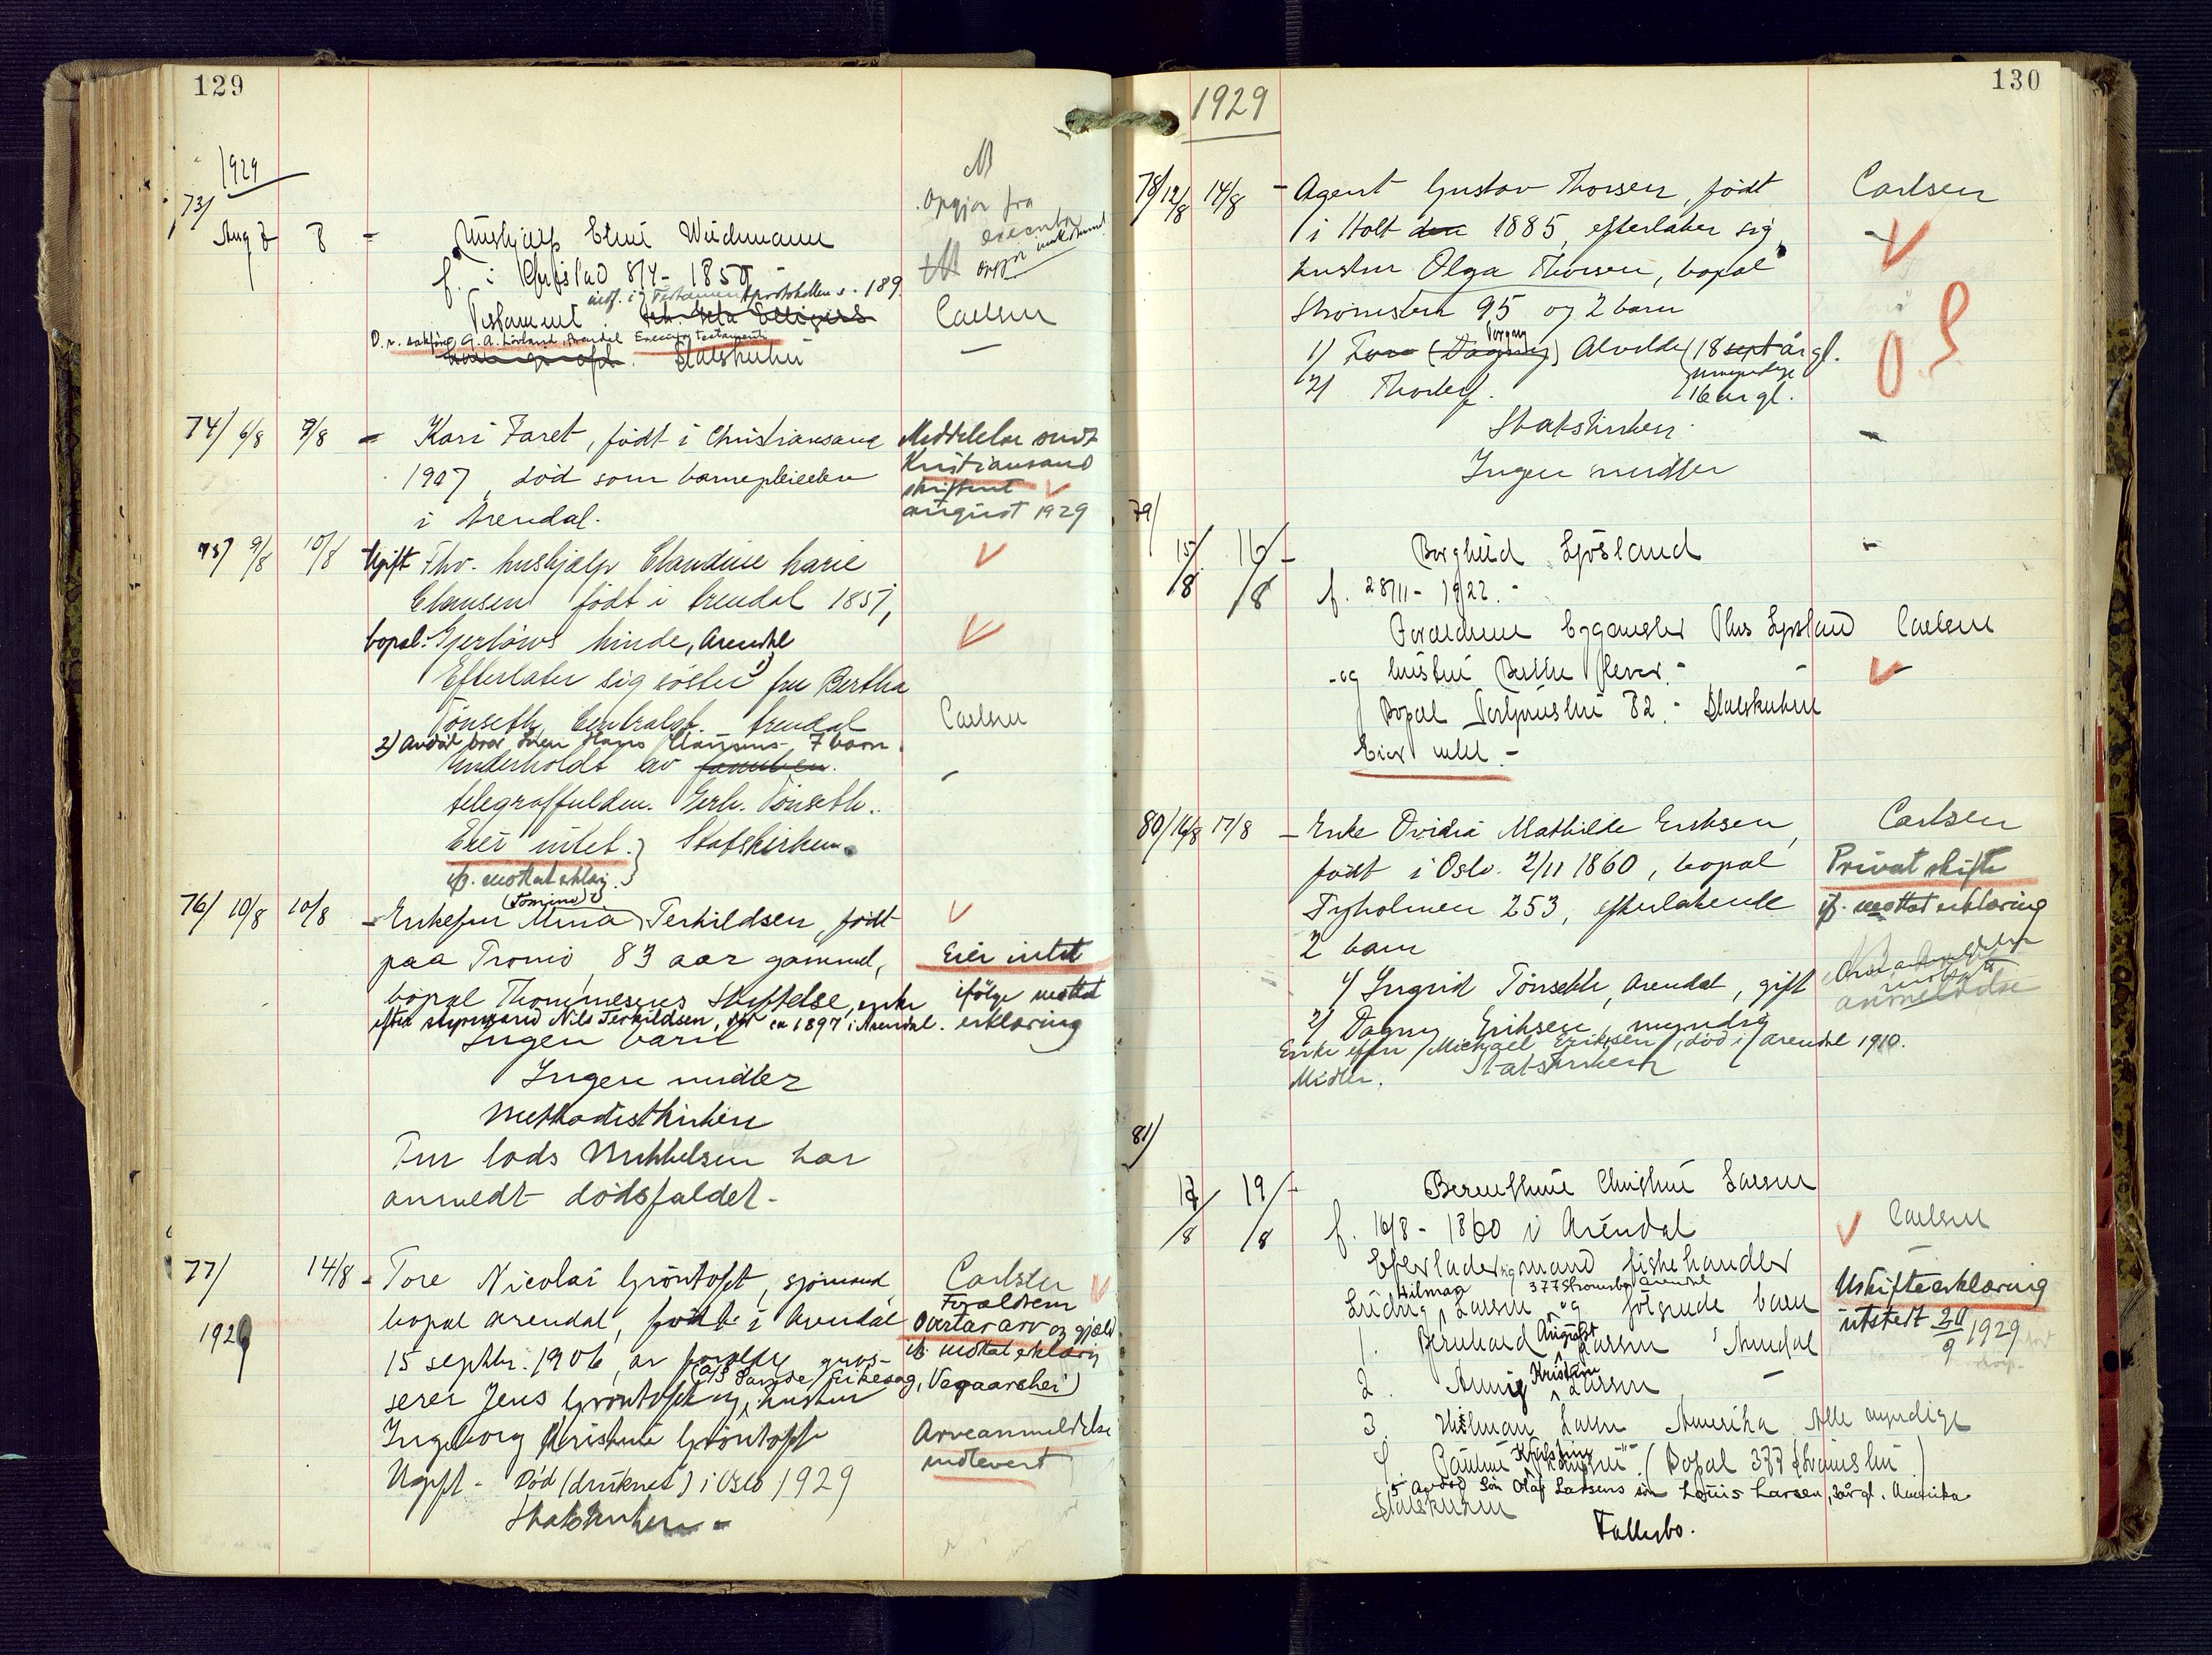 129
1929
73/
Aug 7 8 - Hushjælp Elni Wiedemann
f. i 8/4-1850
indf. i Testamentprotokollen s. 189.
Testament.
O.r. sakfører G. A. Lövland, Arendal Executor testamenti
Statskirken
M
Opgjør fra
executor
Carlsen
74/ 6/8 9/8 - Kari Faret, födt i Christiansand
1907, död som barnepleierske
i Arendal.
Meddelelse sendt
Kristiansand
skifteret
august 1929
75/ 9/8 10/8 Ugift Fhv. hushjælp Claudine Marie
Clausen födt i Arendal 1857,
bopæl: Gjerlöws Minde, Arendal
Efterlater sig söster 1) fru Bertha
Tönseth Centralgt. Arendal
2) Avdöd bror Hans Clausens 7 barn.
Underholdt av familien.
telegraffuldm. Gerh. Tönseth.
Eier intet. Statskirken.
if. mottat erklæring.
Carlsen
76/ 10/8 10/8 - Enkefru Mina (Tomine) Terkildsen, födt
paa Tromö, 83 aar gammel,
bopæl Thommesens Stiftelse, enke
efter Nils Terkildsen, död ca 1897 i Arendal.
Ingen barn
Ingen midler
Methodistkirken
Fru lods Mikkelsen har
anmeldt dödsfaldet-
Eier intet
ifölge mottat
erklæring
77/ 14/8 - Tore Nicolai Gröntoft, sjömand,
1929
bopæl Arendal, födt i Arendal
15 septbr. 1906, av forældre gros-
(a/S Songe Eikesag, Vegaarshei)
serer Jens Gröntoft og hustru
Ingeborg Kristine Gröntoft
Ugift - Död (druknet) i Oslo 1929
Statskirken -
Carlsen
Forældrene
Overtar arv og gjæld
if. mottat erklæring
Arveanmeldelse
indlevert
130
1929
78/ 12/8 14/8 - Agent Gustav Thorsen, födt
i Holt den 1885, efterlater sig
hustru Olga Thorsen, bopæl
Strömsbu 95 og 2 barn
1) Tora (Dagny) Alvilde 18 sept år gl.
umyndige
2) Thorleif. 16 år gl.
Statskirken.
Ingen midler
Carlsen
79/
15/8 16/8 - Borghild Ljösland
f. 28/11-1922.-
Forældrene Ljösland
og hustru lever.-
Bopæl 82.- Statskirken
Eier intet.-
Carlsen
80/ 16/8 17/8 - Enke Ovidia Mathilde Eriksen,
födt i Oslo. 2/11 1860, bopæl
Tyholmen 253, efterlatende
2 barn
1) Ingrid Tönseth, Arendal, gift
2) Dagny Eriksen, myndig
Enke efter Michael Eriksen, död i Arendal 1910.
Midler. Statskirken
Carlsen
Privat skifte
if. mottat erklæring
Arveanmeldelse
mottatt
anmeldelse
81/
17/8 19/8 - Berenthine Christine Larsen
f. 16/8-1860 i Arendal
Efterlader sig mand fiskehandler
Hilmar 377 Strömsbo Arendal
Ludvig Larsen og fölgende barn
1. Bernhard August Larsen Arendal
2. Anny Kristine Larsen -
3. Hilman Larsen Amerika Alle myndige
4. Pauline Kristine (Bopæl 377 Strömsbu)
5. Avdöd Sön Olaf Larsens sön Louis Larsen, år gl. Amerika
Statskirken
Fællesbo.
Carlsen
Uskifteerklæring
utstedt 20/9 1929